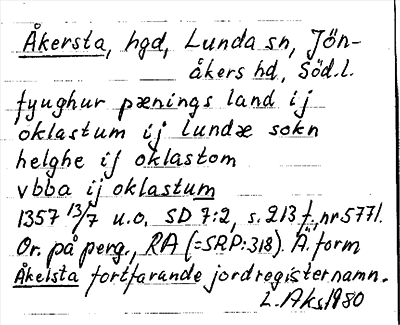 Åkersta, hgd, Lunda sn, Jön-
åkers hd, Söd.l.
fyughur pænings land ij
oklastum ij lundæ sokn
helghe ij oklastom
vbba ij oklastum
1357 13/7 u.o. SD 7:2, s. 213 f. nr 5771.
Or. på perg., RA (=SRP:318). Ä. form
Åkelsta fortfarande jordregisternamn.
L. Aks 1980